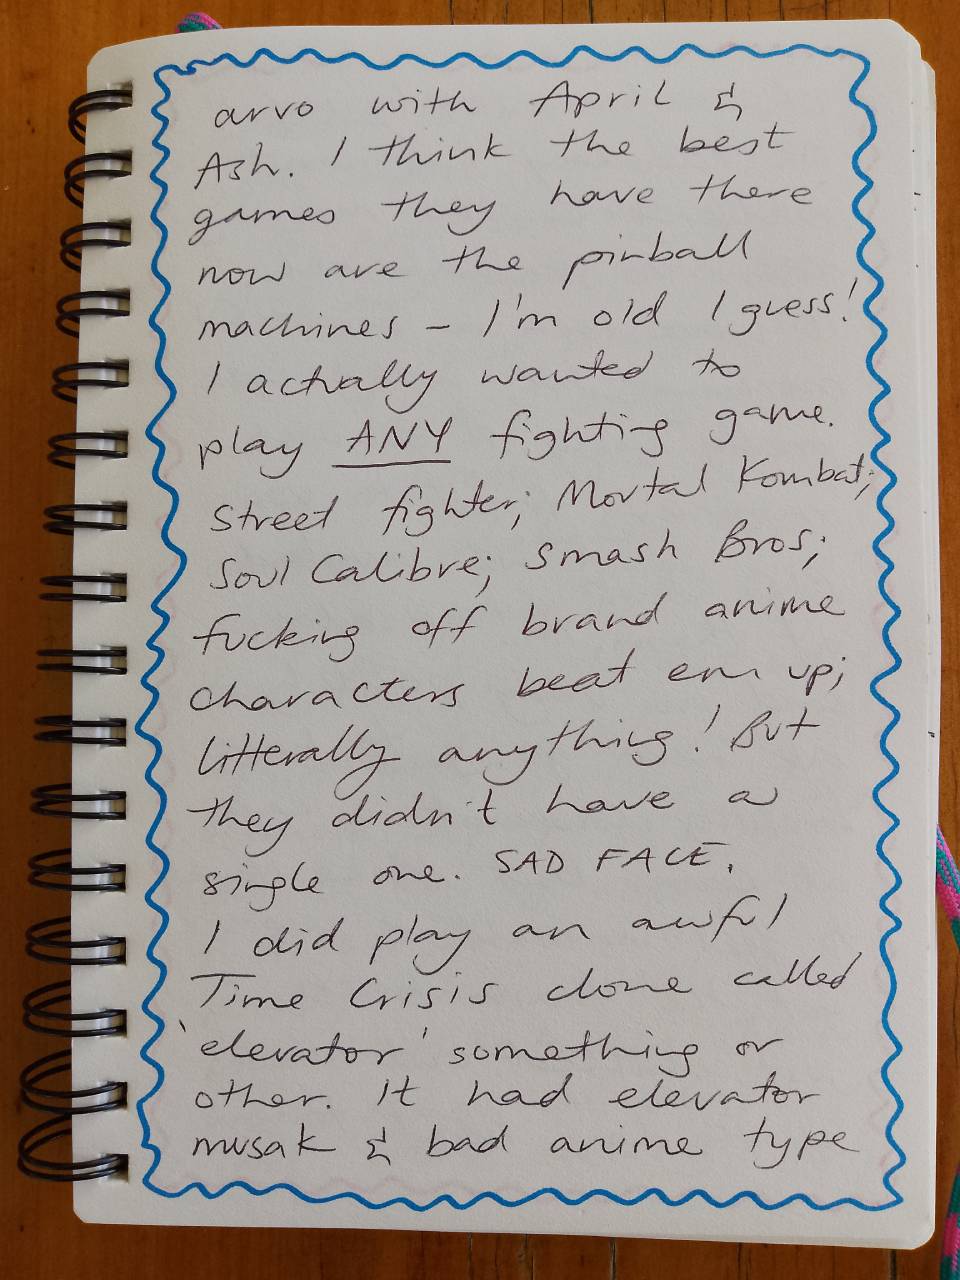 arvo with April &
Ash. I think the best
games they have there
now are the pinball
machines - I'm old I guess!
I actually wanted to
play ANY fighting game.
Street fighter; Mortal Kombat;
Soul Calibre; Smash Bros;
fucking off brand anime
characters beat em up;
litterally anything! But
they didn't have a
single one. SAD FACE.
I did play an awful
Time Crisis clone called
'elevator' something or
other. It had elevator
musak & bad anime type